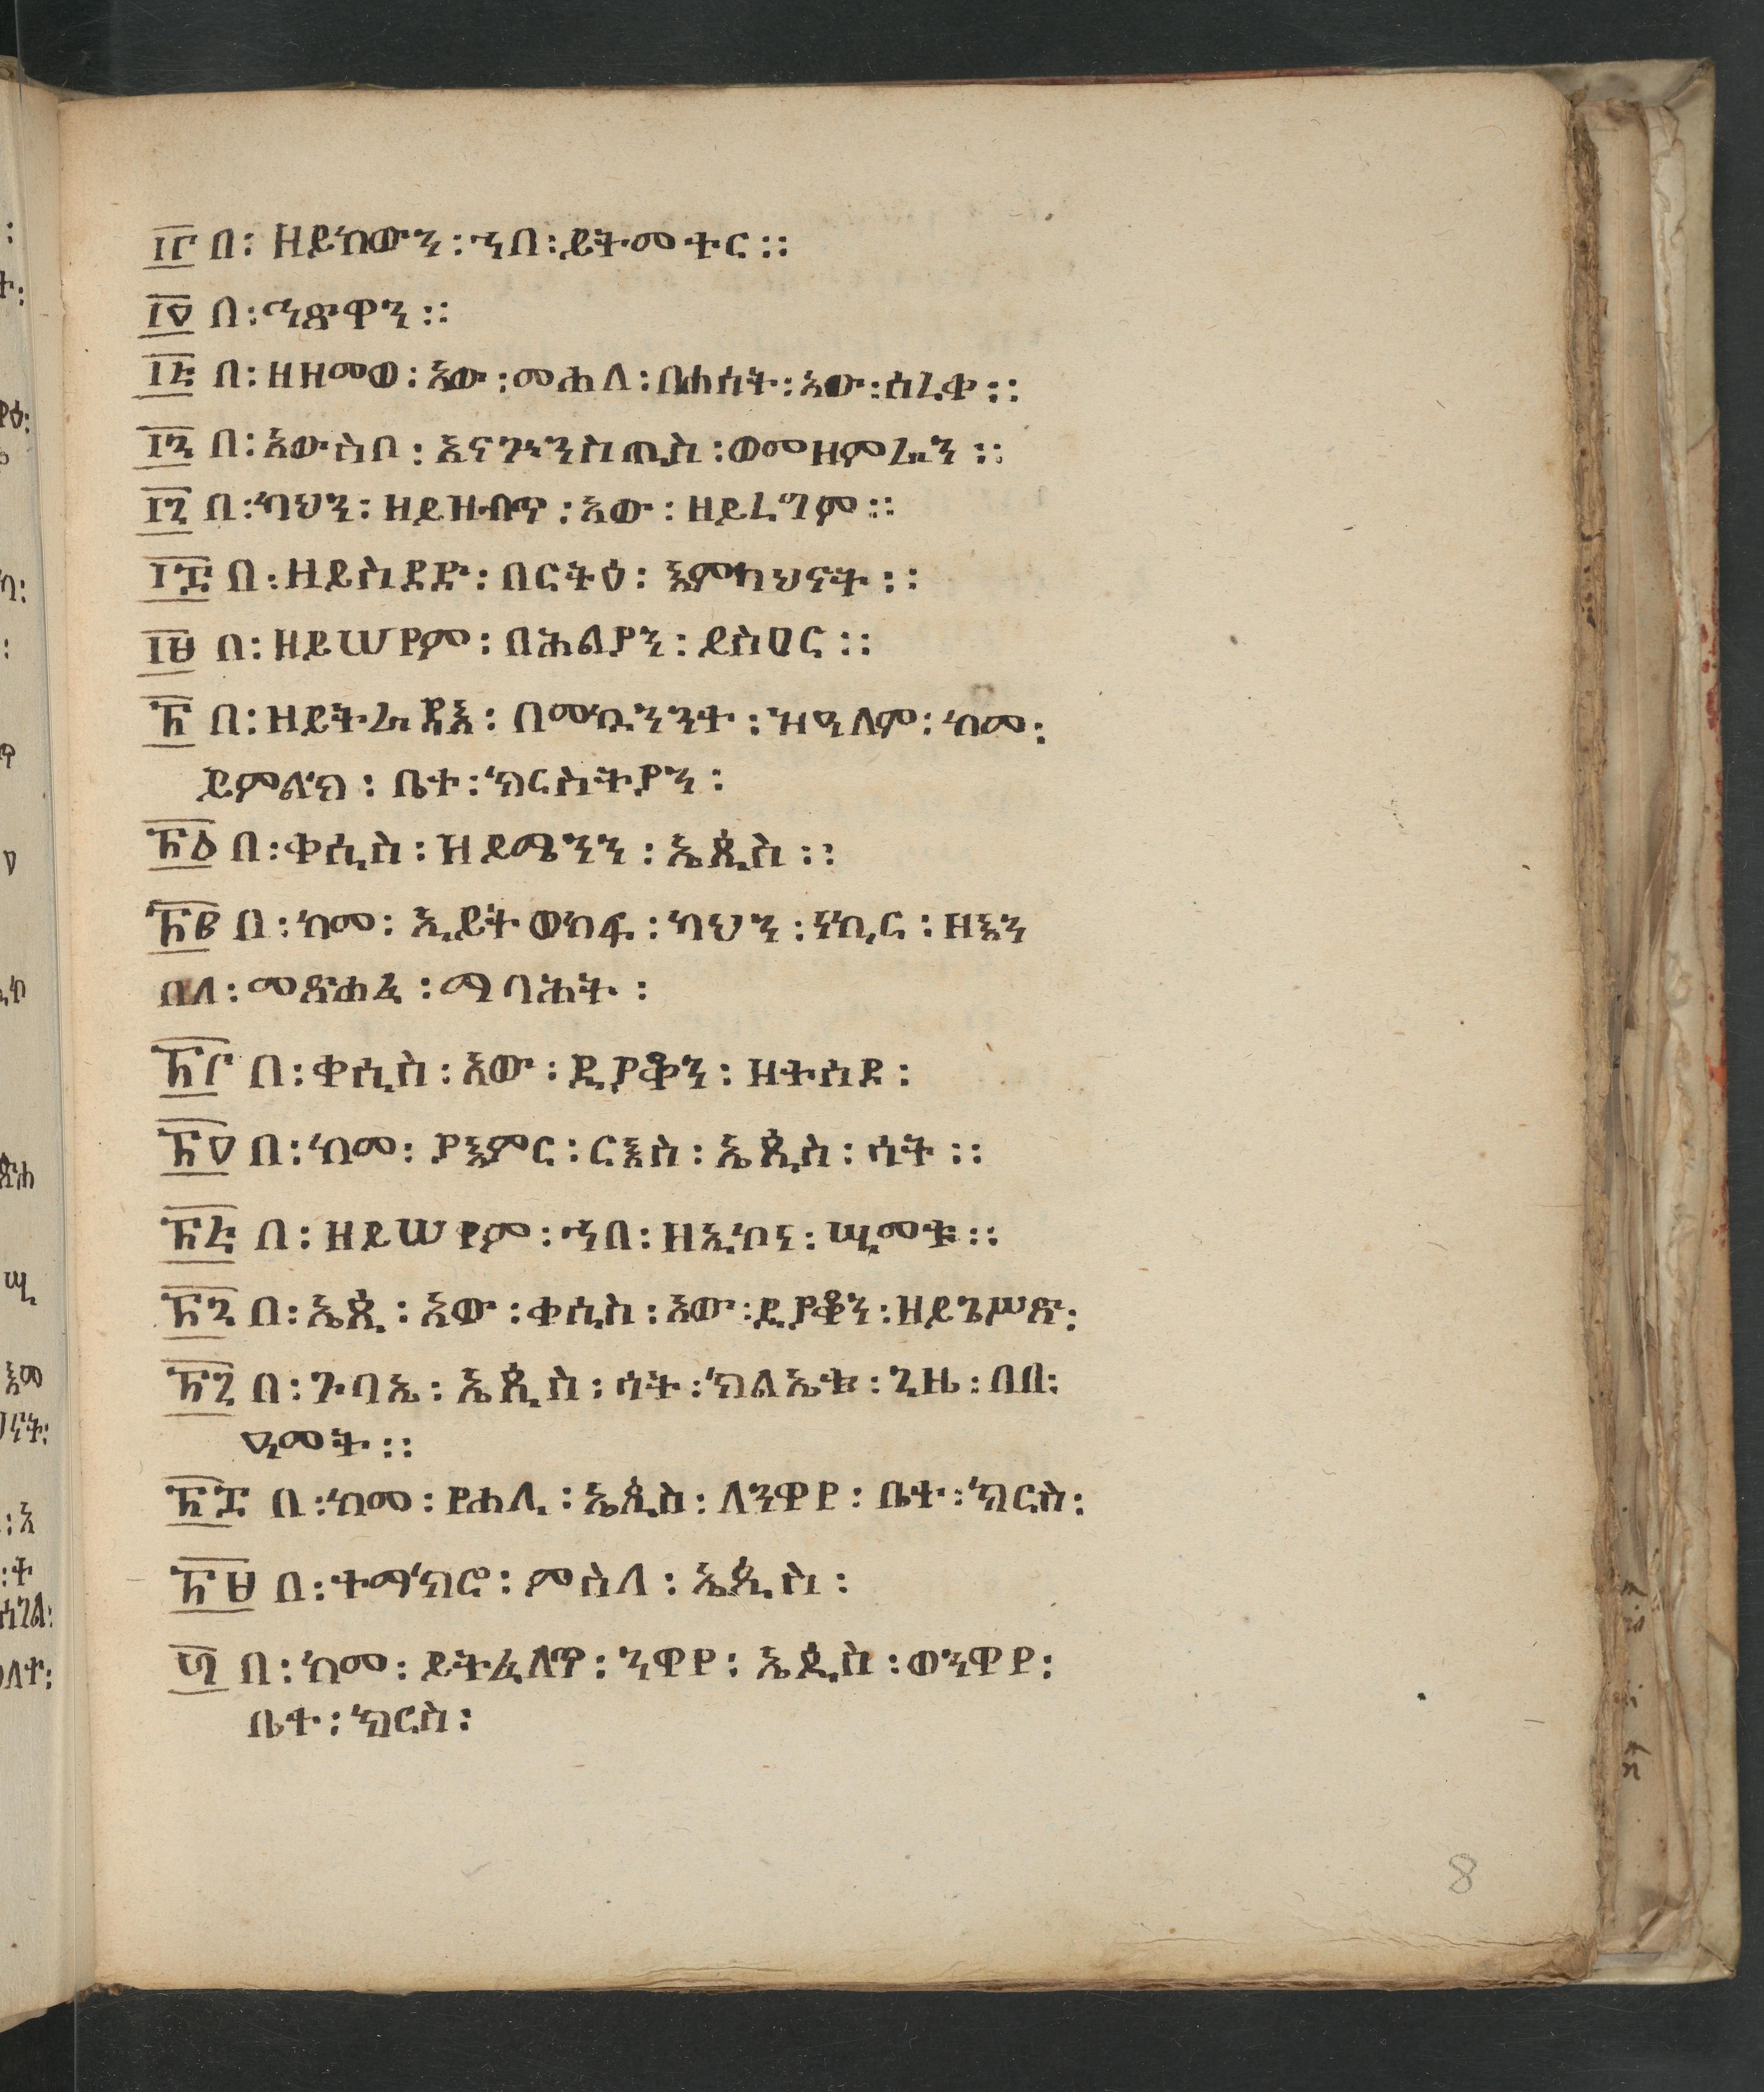 ፲፫ በ፡ ዘይከውን፡ኀበ፡ይትመተር፡፡
፲፬ በ፡ኅጽዋን፡፡
፲፭ በ፡ዘዘመወ፡አው፡መሐለ፡በሐሰት፡አው፡ሰረቀ፡፡
፲፮ በ፡አውሰቦ፡አናጕንስጢስ፡ወመዘምራን፡፡
፲፯ በ፡ካህን፡ዘይዘብጥ፡አው፡ዘይረግም፡፡
፲፰ በ፡ዘይስደድ፡በርትዕ፡እምካህናት፡፡
፲፱ በ፡ዘይሠየም፡በሕልያን፡ይስዐር፡፡
፳ በ፡ዘይትራዳእ፡በመኳንንተ፡ዝዓለም፡ከመ፡
ይምልክ፡ቤተ፡ክርስትያን፡
፳፩ በ፡ቀሲስ፡ዘይሜንን፡ኤጲስ፡፡
፳፪ በ፡ከመ፡ኢይትወከፋ፡ካህን፡ነኪር፡ዘእን
በለ፡መጽሐፈ፡ማባሕት፡
፳፫ በ፡ቀሲስ፡አው፡ዲያቆን፡ዘተሰደ፡
፳፬ በ፡ከመ፡ያእምር፡ርእሰ፡ኤጲስ፡ሳት፡፡
፳፭ በ፡ዘይሠየም፡ኀበ፡ዘኢኮነ፡ሢመቱ፡፡
፳፮ በ፡ኤጲ፡አው፡ቀሲስ፡አው፡ዲያቆን፡ዘይጌሥጽ፡
፳፯ በ፡ጉባኤ፡ኤጲስ፡ሳት፡ክልኤቱ፡ጊዜ፡በበ፡
ዓመት፡፡
፳፰ በ፡ከመ፡የሐሊ፡ኤጲስ፡ለንዋየ፡ቤተ፡ክርስ፡
፳፱ በ፡ተማክሮ፡ምስለ፡ኤጲስ፡
፴ በ፡ከመ፡ይትፈለጥ፡ንዋየ፡ኤጲስ፡ወንዋየ፡
ቤተ፡ክርስ፡
8